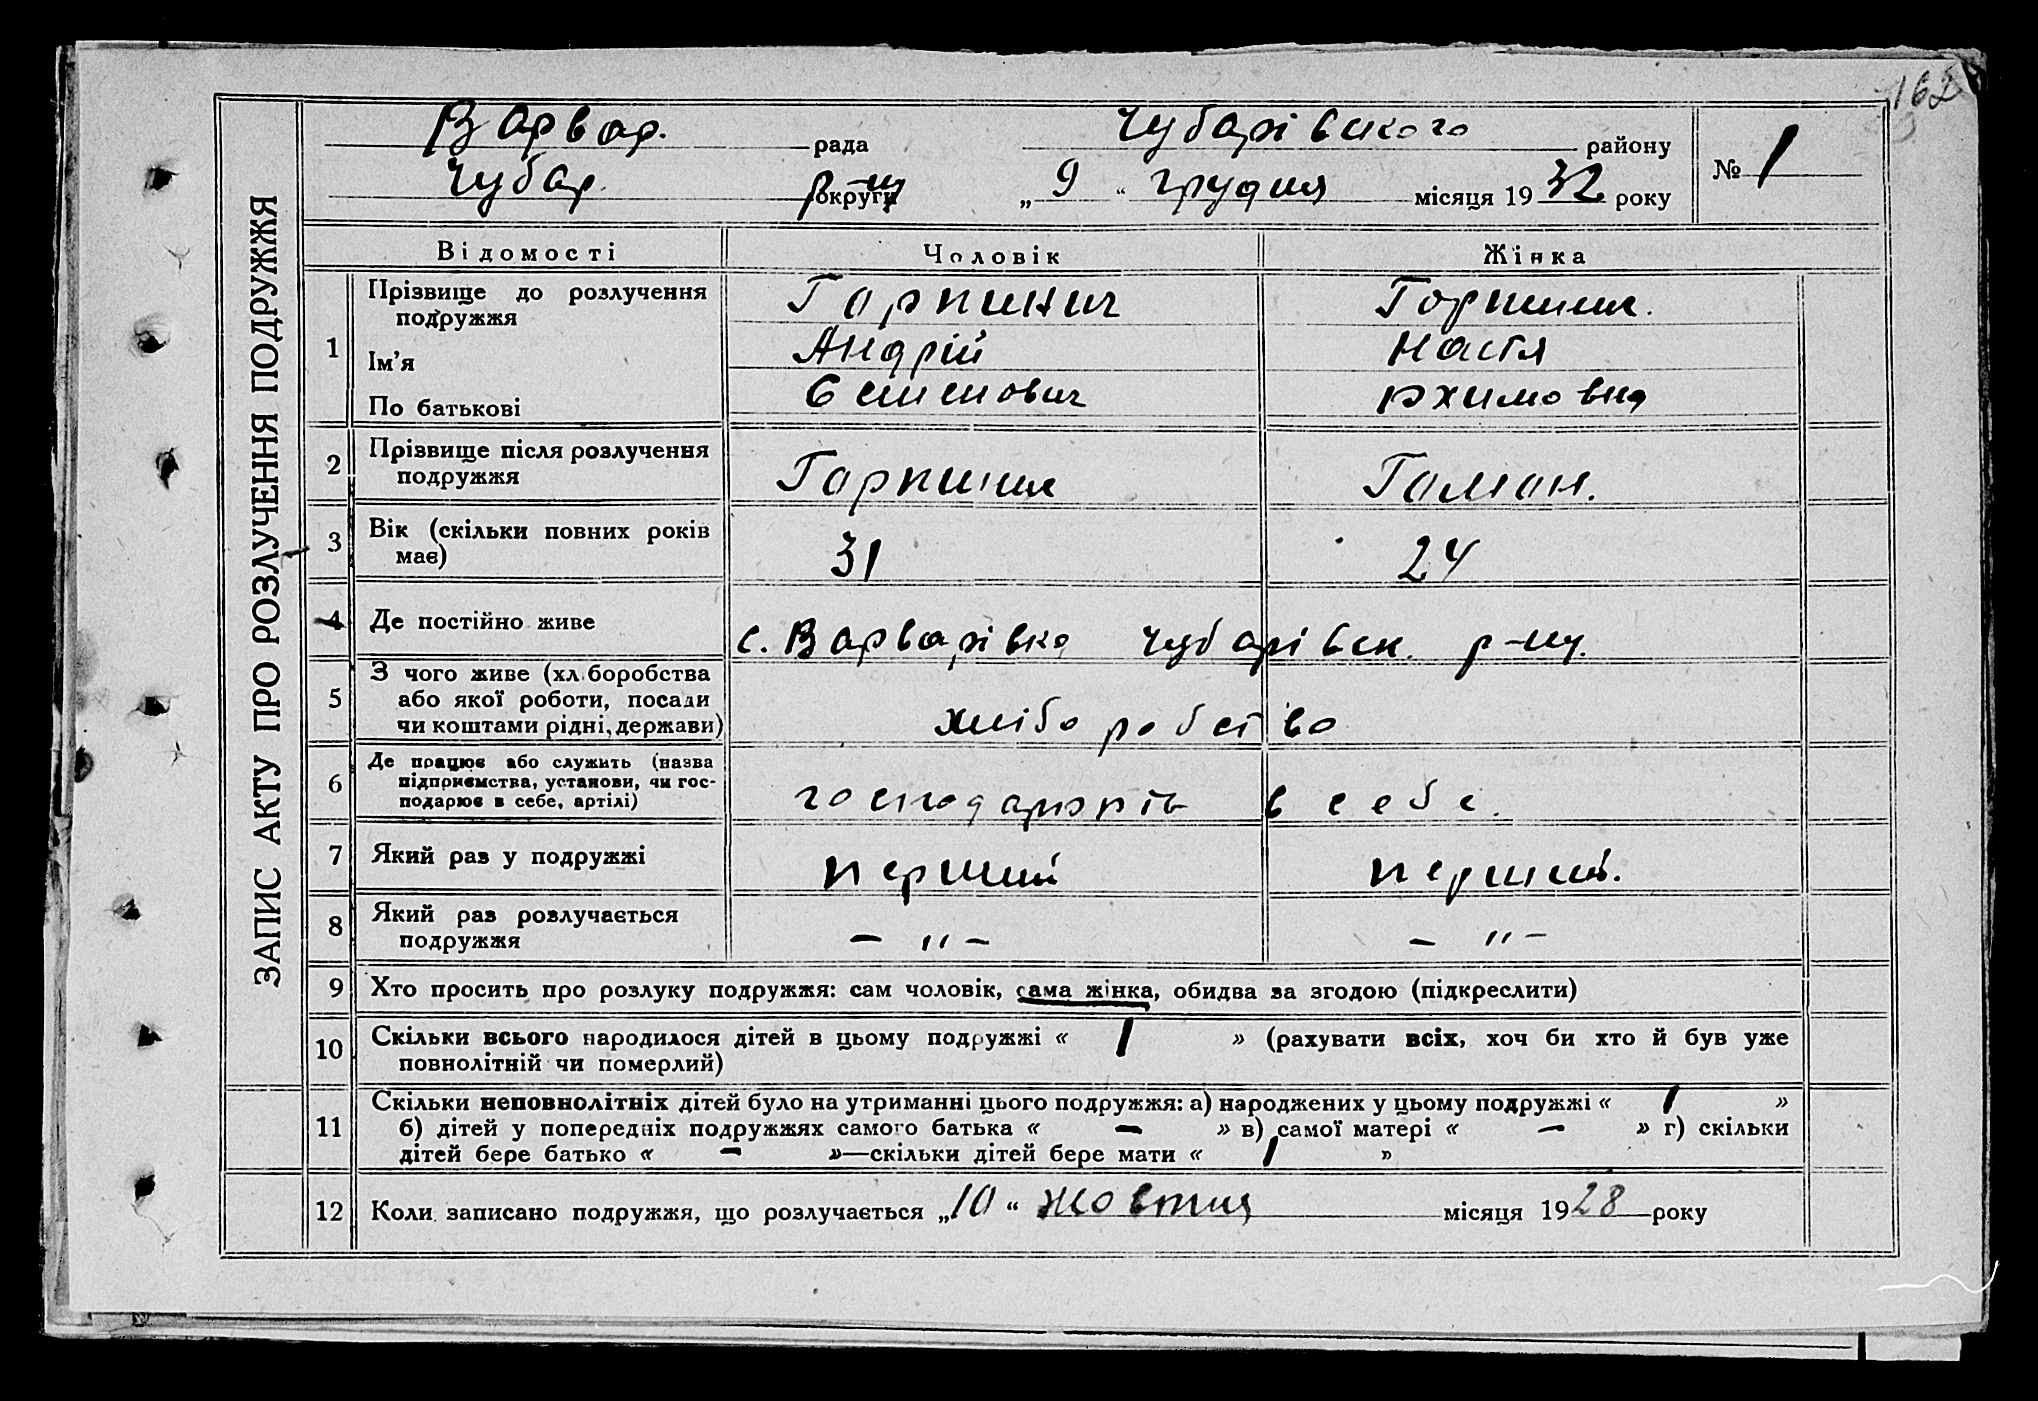 162
ЗАПИС АКТУ ПРО РОЗЛУЧЕННЯ ПОДРУЖЖЯ
Варвар. рада Чубарівського району № 1
Чубар. р-ну округи „ 9 “ грудня місяця 1932 року
Відомості Чоловік Жінка
1 Прізвище до розлучення подружжя Горпинич Горпинич.
Ім’я Андрій Настя
По батькові Семенович
2 Прізвище після розлучення подружжя Горпинич Гоман.
3 Вік (скільки повних років має) 31 24
4 Де постійно живе с. Варварівка Чубарівськ. р-ну.
5 З чого живе (хліборобства або якої роботи, посади чи коштами рідні, держави) хліборобство
6 Де працює або служить (назва підприємства, установи, чи господарює в себе, артілі) господарюють в себе.
7 Який раз у подружжі перший перший.
8 Який раз розлучається подружжя – " – – " –
9 Хто просить про розлуку подружжя: сам чоловік, сама жінка, обидва за згодою (підкреслити)
10 Скільки всього народилося дітей в цьому подружжі « 1 » (рахувати всіх, хоч би хто й був уже
повнолітній чи померлий)
11 Скільки неповнолітніх дітей було на утриманні цього подружжя: а) народжених у цьому подружжі « 1 »
б) дітей у попередніх подружжях самого батька « – » в) самої матері « – » г) скільки
дітей бере батько « – »—скільки дітей бере мати « 1 »
12 Коли записано подружжя, що розлучається „10“ жовтня місяця 1928 року